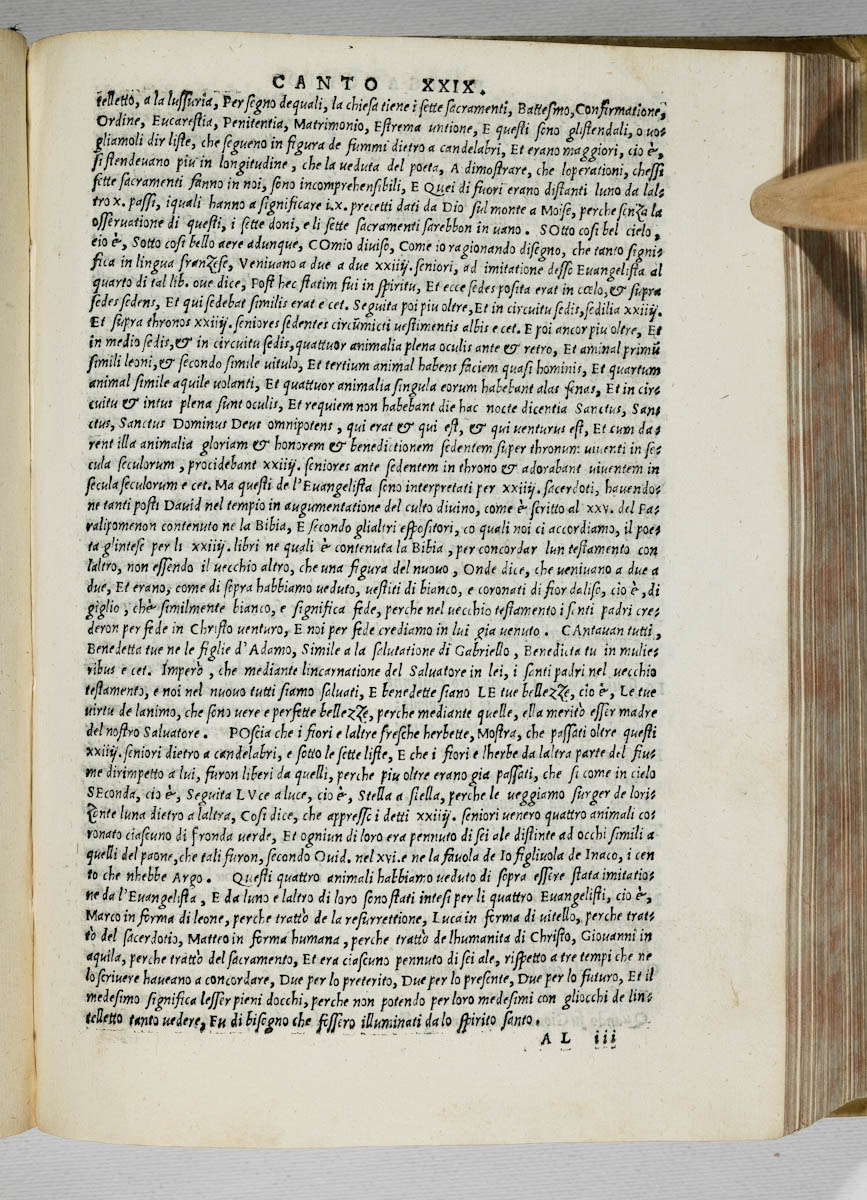 CANTO XXIX.
telletto, a la lussuria, Per segno dequali, la chiesa tiene i sette sacramenti, Battesmo, Confirmatione,
Ordine, Eucarestia, Penitentia, Matrimonio, Estrema untione, E questi sono glistendali, o uo-
gliamoli dir liste, che segueno in figura de fiammi dietro a candelabri, Et erano maggiori, cio è,
si stendeuano piu in longitudine, che la ueduta del poeta, A dimostrare, che loperationi, chessi
sette sacramenti fanno in noi, sono incomprehensibili, E QUei di fuori erano distanti luno da lal-
tro x. passi, iquali hanno a significare i.x. precetti dati da Dio sul monte a Moise, perche senza la
osseruatione di questi, i sette doni, e li sette sacramenti sarebbon in uano. SOtto cosi bel cielo,
cio è, Sotto cosi bello aere adunque, COmio diuiso, Come io ragionando disegno, che tanto signi-
fica in lingua franzese, Veniuano a due a due xxiiij. seniori, ad imitatione desso Euangelista al
quarto di tal lib. oue dice, Post hec statim fui in spiritu, Et ecce sedes posita erat in cœlo, & supra
sedes sedens, Et qui sedebat similis erat e cet. Seguita poi piu oltre, Et in circuitu sedis, sedilia xxiiij.
Et supra thronos xxiiij. seniores sedentes circũmicti uestimentis albis e cet. E poi ancor piu oltre, Et
in medio sedis, & in circuitu sedis, quattuor animalia plena oculis ante & retro, Et aminal primũ
simili leoni, & secondo simile uitulo, Et tertium animal habens faciem quasi hominis, Et quartum
animal simile aquile uolanti, Et quattuor animalia singula eorum habebant alas senas, Et in cir-
cuitu & intus plena sunt oculis, Et requiem non habebant die hac nocte dicentia Sanctus, San-
ctus, Sanctus Dominus Deus omnipotens, qui erat & qui est, & qui uenturus est, Et cum da-
rent illa animalia gloriam & honorem & benedictionem sedentem super thronum uiuenti in se-
cula seculorum, procidebant xxiiij. seniores ante sedentem in throno & adorabant uiuentem in
secula seculorum e cet. Ma questi de l'Euangelista sono interpretati per xxiiij. sacerdoti, hauendo-
ne tanti posti Dauid nel tempio in augumentatione del culto diuino, come è scritto al xxv. del Pa-
ralipomenon contenuto ne la Bibia, E secondo glialtri espositori, co quali noi ci accordiamo, il poe-
ta glintese per li xxiiij. libri ne quali è contenuta la Bibia, per concordar lun testamento con
laltro, non essendo il uecchio altro, che una figura del nuouo, Onde dice, che ueniuano a due a
due, Et erano, come di sopra habbiamo ueduto, uestiti di bianco, e coronati di fior daliso, cio è, di
giglio, chè similmente bianco, e significa fede, perche nel uecchio testamento i santi padri cre-
deron per fede in Christo uenturo, E noi per fede crediamo in lui gia uenuto. CAntauan tutti,
Benedetta tue ne le figlie d'Adamo, Simile a la salutatione di Gabriello, Benedicta tu in mulie-
ribus e cet. Imperò, che mediante lincarnatione del Saluatore in lei, i santi padri nel uecchio
testamento, e noi nel nuouo tutti siamo saluati, E benedette siano LE tue bellezze, cio è, Le tue
uirtu de lanimo, che sono uere e perfette bellezze, perche mediante quelle, ella meritò esser madre
del nostro Saluatore. POscia che i fiori e laltre fresche herbette, Mostra, che passati oltre questi
xxiiij. seniori dietro a candelabri, e sotto le sette liste, E che i fiori e lherbe da laltra parte del fiu-
me dirimpetto a lui, furon liberi da quelli, perche piu oltre erano gia passati, che si come in cielo
SEconda, cio è, Seguita LVce a luce, cio è, Stella a stella, perche le ueggiamo surger de lori-
zonte luna dietro a laltra, Cosi dice, che appresso i detti xxiiij. seniori uenero quattro animali co-
ronato ciascuno di fronda uerde, Et ogniun di loro era pennuto di sei ale distinte ad occhi simili a
quelli del paone, che tali furon, secondo Ouid. nel xvi. e ne la fauola de Io figliuola de Inaco, i cen
to che nhebbe Argo. Questi quattro animali habbiamo ueduto di sopra essere stata imitatio-
ne da l'Euangelista, E da luno e laltro di loro sono stati intesi per li quattro Euangelisti, cio è,
Marco in forma di leone, perche trattò de la resurrettione, Luca in forma di uitello, perche trat-
tò del sacerdotio, Matteo in forma humana, perche trattò de lhumanita di Christo, Giouanni in
aquila, perche trattò del sacramento, Et era ciascuno pennuto di sei ale, rispetto a tre tempi che ne
lo scriuere haueano a concordare, Due per lo preterito, Due per lo presente, Due per lo futuro, Et il
medesimo significa lesser pieni docchi, perche non potendo per loro medesimi con gliocchi de lin-
telletto tanto uedere, Fu di bisogno che fossero illuminati da lo spirito santo.
AL iii